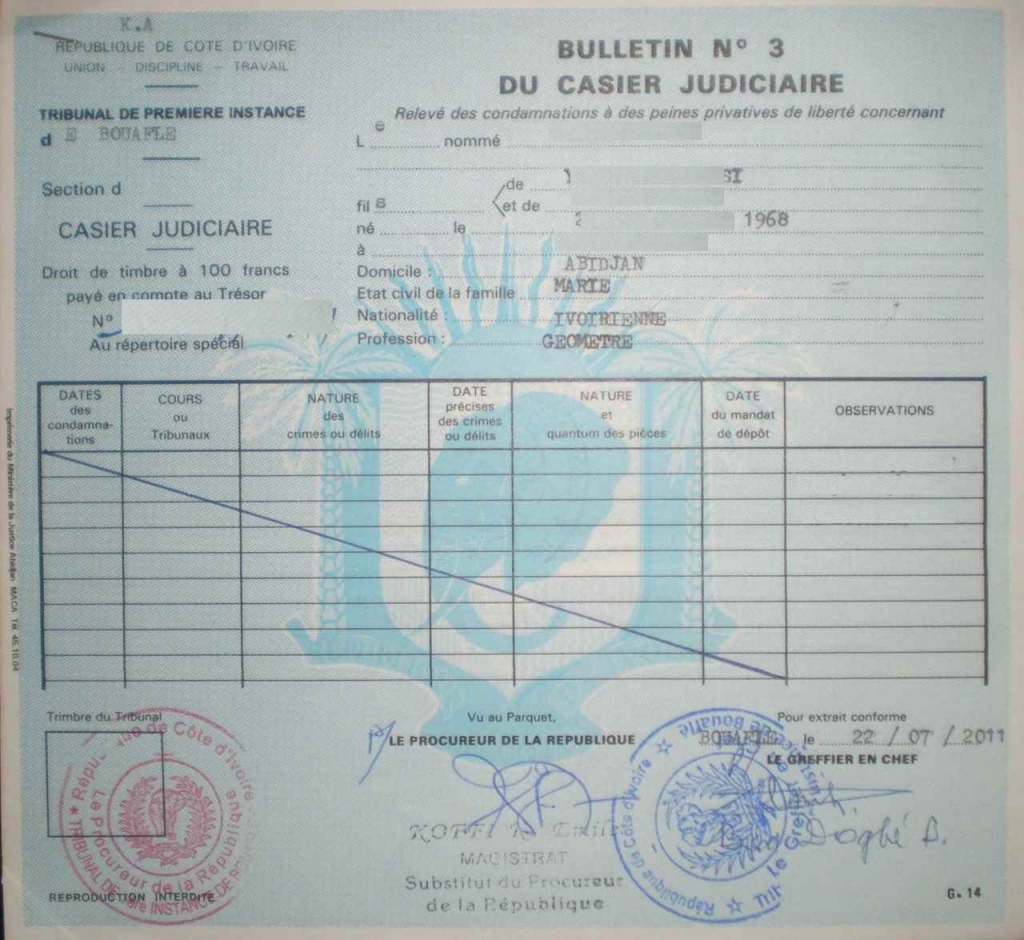 K.A
REPUBLIQUE DE COTE D'IVOIRE
UNION — DISCIPLINE — TRAVAIL
TRIBUNAL DE PREMIERE INSTANCE
d E BOUAFLE
Section d
CASIER JUDICIAIRE
Droit de timbre à 100 francs
payé en compte au Trésor
N°
Au répertoire spécial
BULLETIN N° 3
DU CASIER JUDICIAIRE
Relevé des condamnations à des peines privatives de liberté concernant
L e nommé
de SI
fil s et de
né le 1968
à
Domicile : ABIDJAN
Etat civil de la famille MARIE
Nationalité : IVOIRIENNE
Profession : GEOMETRE
DATES des condamna-tions
COURS ou Tribunaux
NATURE des crimes ou délits
DATE précises des crimes ou délits
NATURE et quantum des pièces
DATE du mandat de dépôt
OBSERVATIONS
Imprimerie du Ministère de la Justice Abidjan MACA Tél. 45.10.04
Trimbre du Tribunal
Le Procureur de la République
REPRODUCTION INTERDITE
Vu au Parquet,
LE PROCUREUR DE LA REPUBLIQUE
KOFFI
MAGISTRAT
Substitut du Procureur
de la République
Pour extrait conforme
BOUAFLE le 22 / 07 / 2011
LE GREFFIER EN CHEF
République de Côte d'Ivoire
G. 14